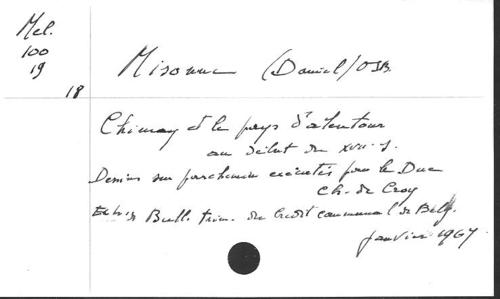 Mel.
100
19
18
Misonne (Daniel) OSB.
Chimay et le pays d'alentour
au début du XVII s.
Dessins sur parchemin exécutés pour le Duc
Ch. de Croy
Extr. de Bull. trim. du Crédit communal de Belg.
janvier 1967